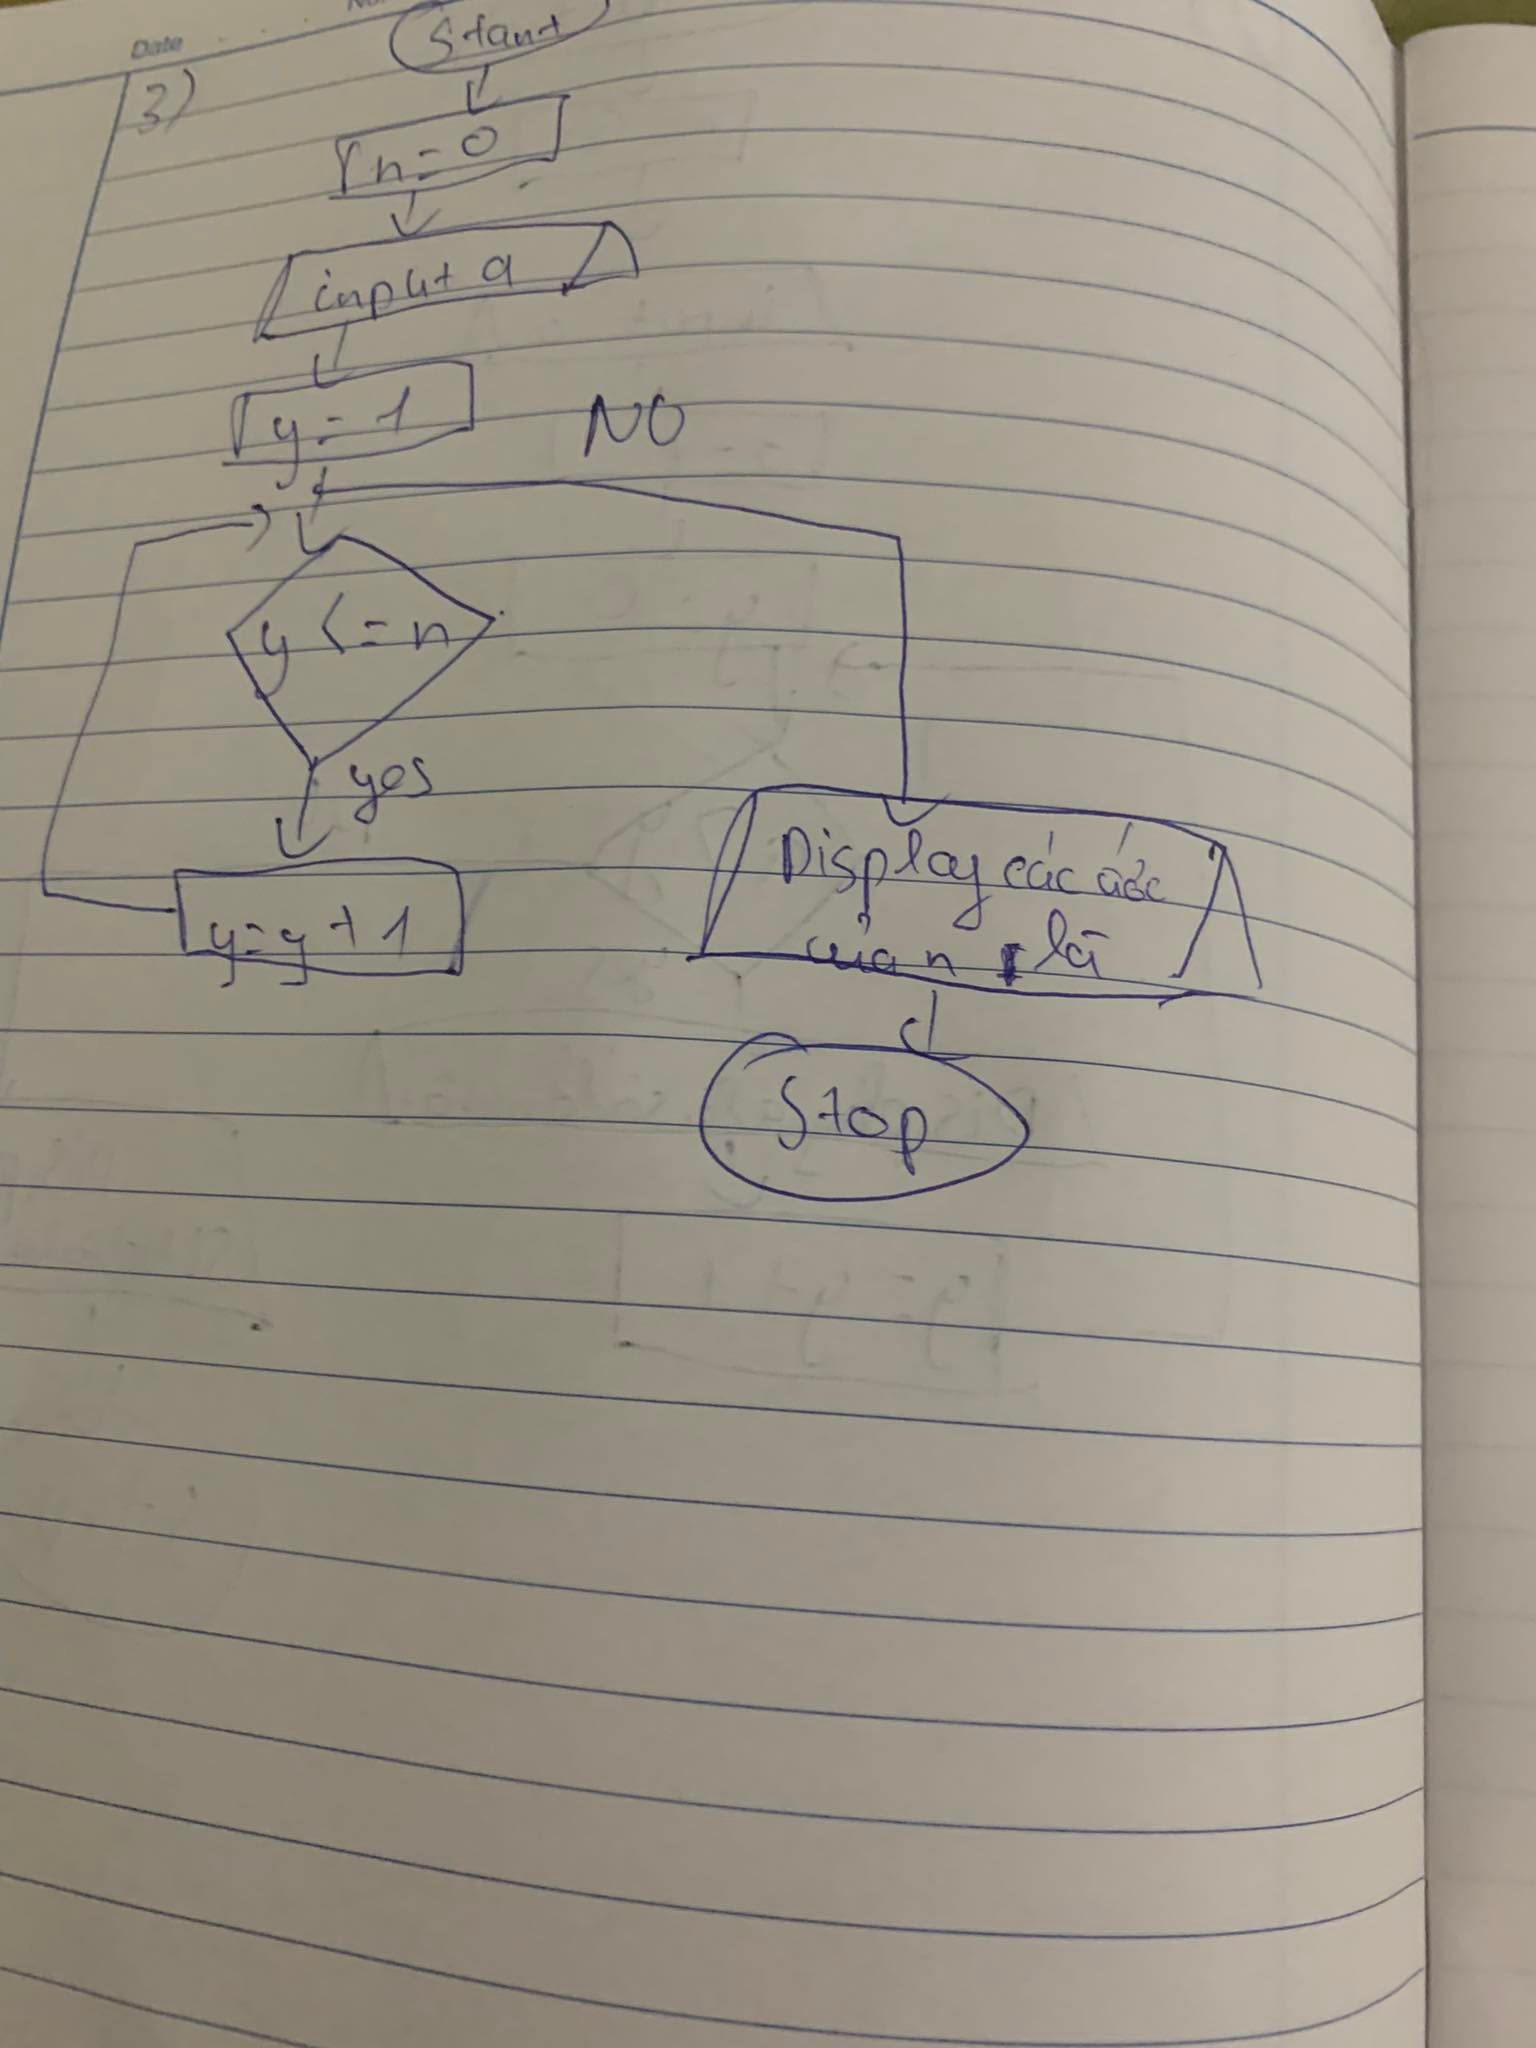 Date
No
3)
Start
n = 0
input a
y = 1
NO
y <= n
yes
y = y + 1
Display các ước
của n là
Stop